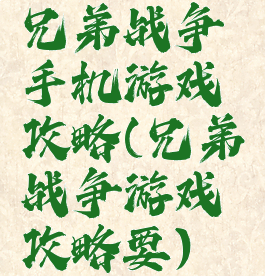 兄弟战争
手机游戏
攻略(兄弟
战争游戏
攻略要)